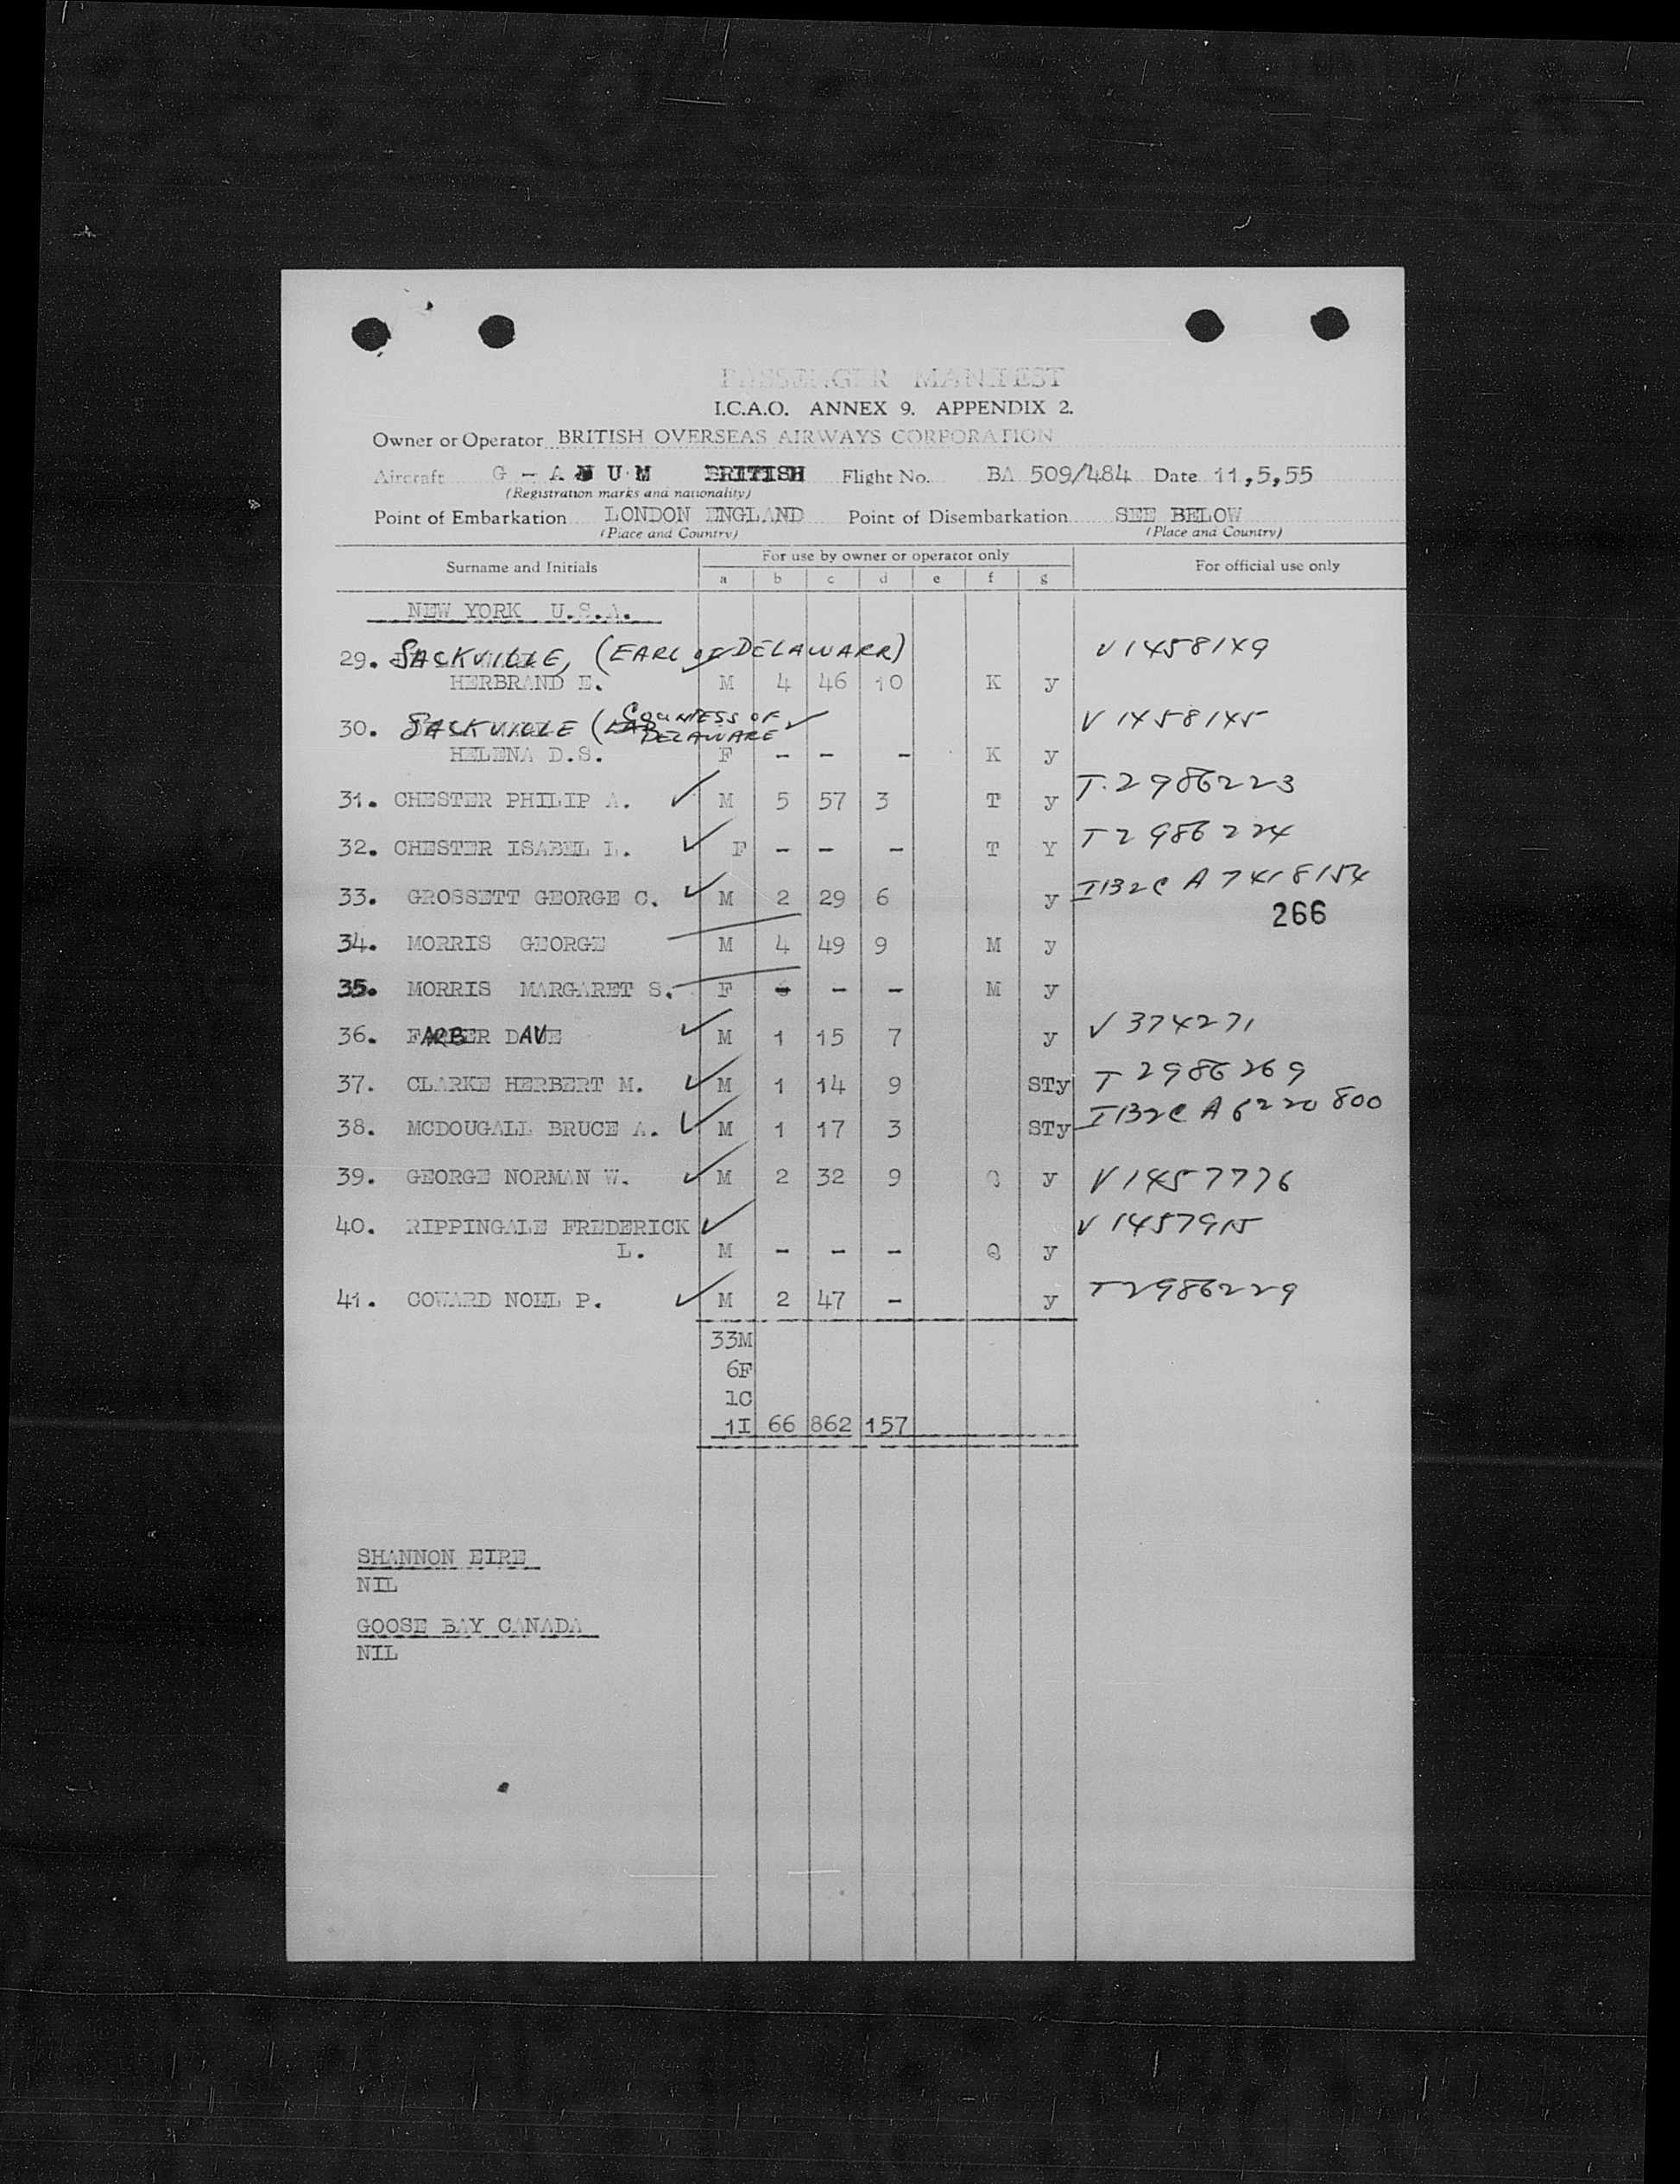 PASSENGER MANIFEST
I.C.A.O. ANNEX 9. APPENDIX 2.
Owner or Operator BRITISH OVERSEAS AIRWAYS CORPORATION
Aircraft G - A N U M BRITISH Flight No. BA 509/484 Date 11,5,55
(Registration marks and nationality)
Point of Embarkation LONDON ENGLAND Point of Disembarkation SEE BELOW
(Place and Country) (Place and Country)
Surname and Initials For use by owner or operator only For official use only
a b c d e f g
NEW YORK U.S.A.
29. SACKVILLE, (EARL OF DELAWARR) V1458149
HERBRAND E. M 4 46 10 K y
30. SACKVILLE (COUNTESS OF DELAWARE V1458145
HELENA D.S. F - - - K y
31. CHESTER PHILIP A. M 5 57 3 T y T.2986223
32. CHESTER ISABEL L. F - - - T Y T2986224
33. GROSSETT GEORGE C. M 2 29 6 y I132C A7418154
266
34. MORRIS GEORGE M 4 49 9 M y
35. MORRIS MARGARET S. F - - - M y
36. FARBER DAVE M 1 15 7 y V374271
37. CLARKE HERBERT M. M 1 14 9 STy T2986269
38. MCDOUGALL BRUCE A. M 1 17 3 STy I132C A6220800
39. GEORGE NORMAN W. M 2 32 9 Q y V1457776
40. RIPPINGALE FREDERICK V1457915
L. M - - - Q y
41. COWARD NOEL P. M 2 47 - y T2986229
33M
6F
1C
1I 66 862 157
SHANNON EIRE
NIL
GOOSE BAY CANADA
NIL